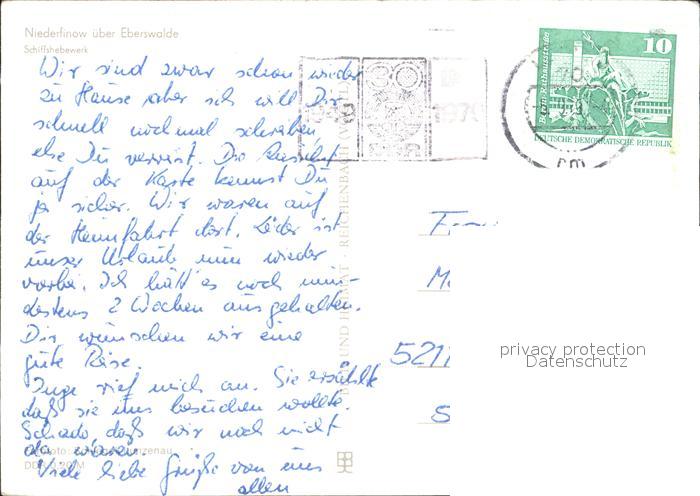 Niederfinow über Eberswalde
Schiffshebewerk
Wir sind zwar schon wieder
zu Hause aber ich will Dir
schnell noch mal schreiben
ehe Du verreist. Die Ansicht
auf der Karte kennst Du
ja sicher. Wir waren auf
der Heimfahrt dort. Leider ist
unser Urlaub nun wieder
vorbei. Ich hätt es noch min-
destens 2 Wochen ausgehalten.
Dir wünschen wir eine
gute Reise.
Inge rief mich an. Sie erzählte
daß sie uns besuchen wollte.
Schade daß wir noch nicht
da waren.
Viele liebe Grüße von uns
allen
UND HEIMAT · REICHENBACH (VOGTL)
30
1949
1979
DDR
10
Berlin, Rathausstraße
DEUTSCHE DEMOKRATISCHE REPUBLIK
5211
privacy protection
Datenschutz